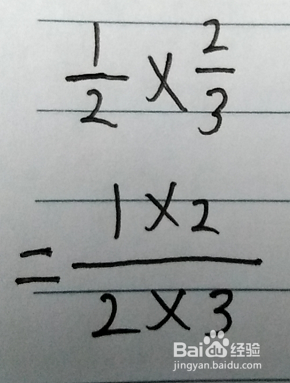 1/2 × 2/3
= 1×2 / 2×3
Baidu 经验
jingyan.baidu.com